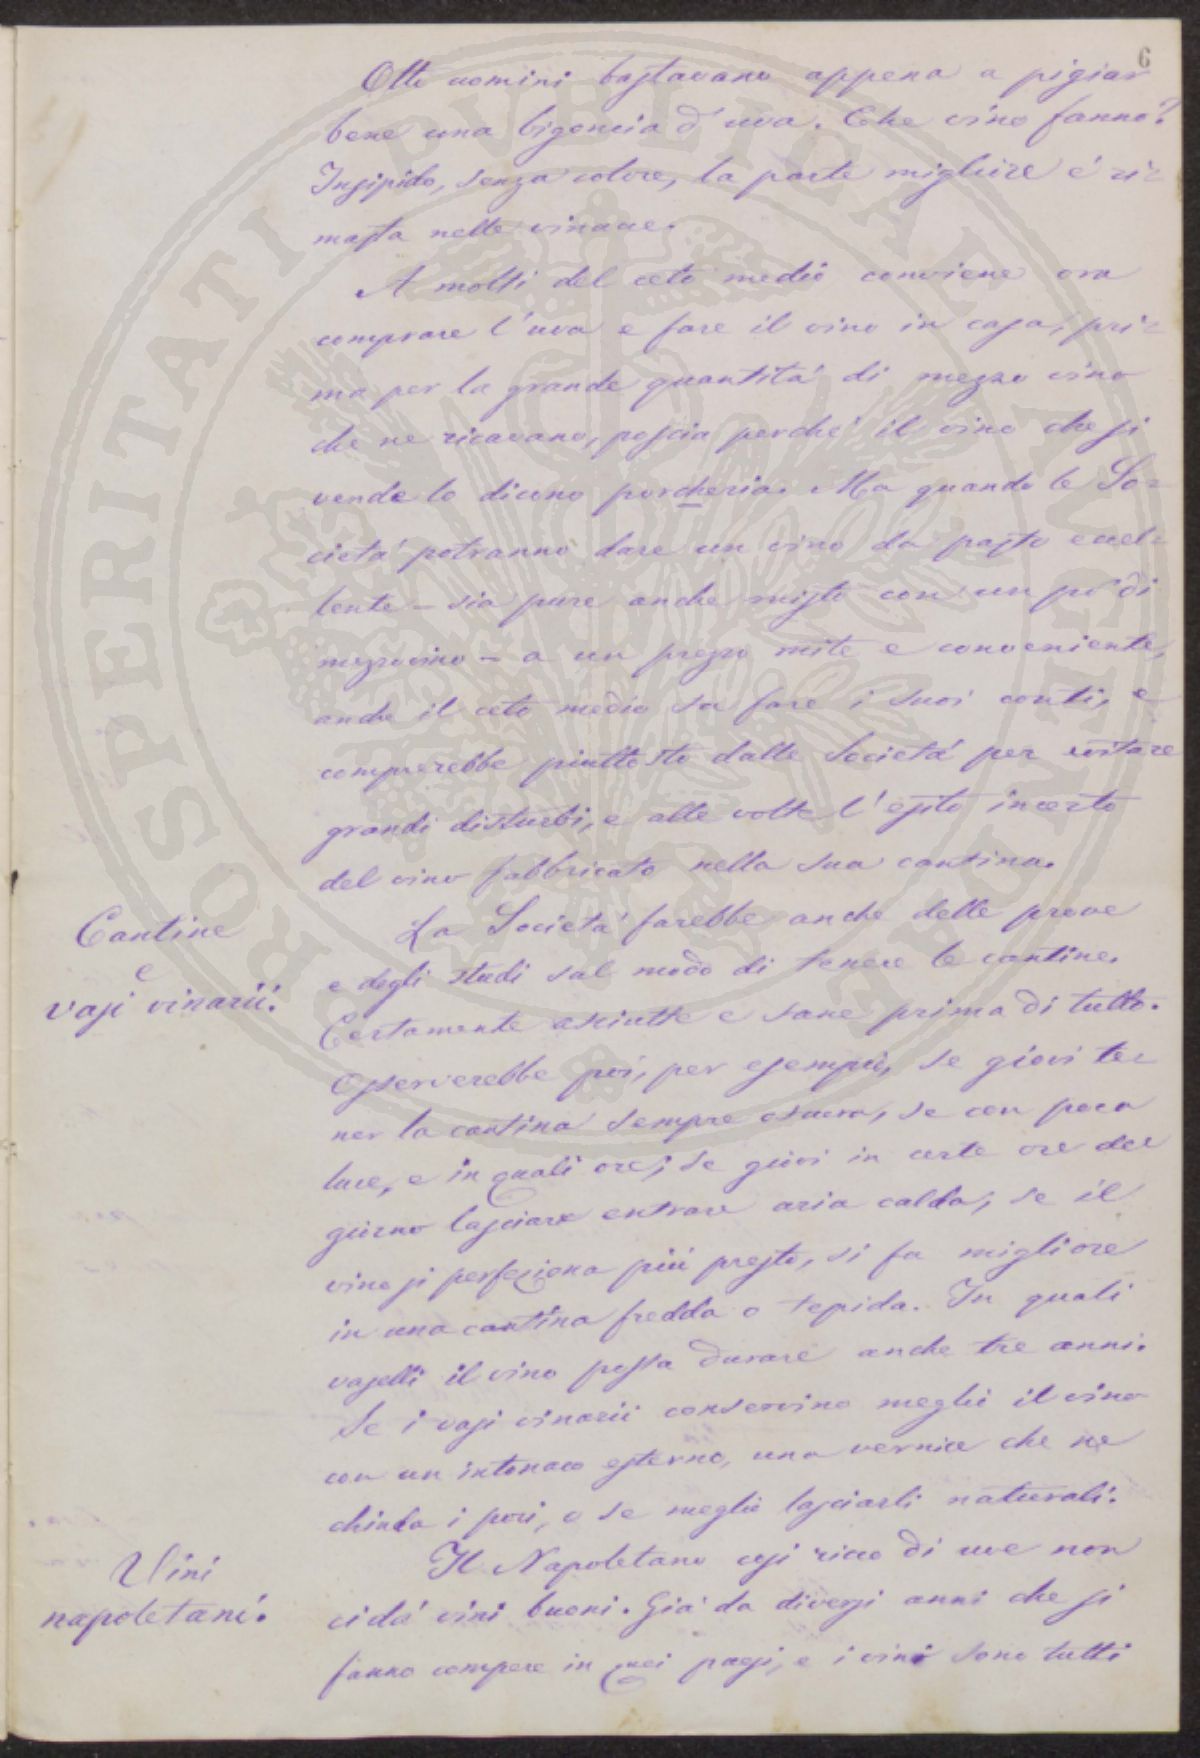 6
Otto uomini bastavano appena a pigiar
bene una bigoncia d'uva. Che vino fanno?
Insipido, senza colore, la parte migliore é ri=
masta nelle vinacce.
A molti del ceto medio conviene ora
comprare l'uva e fare il vino in casa, pri=
ma per la grande quantitá di mezzo vino
che ne ricavano, poscia perché il vino che si
vende lo dicono porcheria. Ma quando le So=
cietá potranno dare un vino da pasto eccel=
lente – sia pure anche misto con un po' di
mezzovino – a un prezzo mite e conveniente,
anche il ceto medio sa fare i suoi conti, e
comprerebbe piuttosto dalle Societá per evitare
grandi disturbi, e alle volte l'esito incerto
del vino fabbricato nella sua cantina.
Cantine
e
vasi vinarii.
La Societá farebbe anche delle prove
e degli studi sul modo di tenere le cantine.
Certamente asciutte e sane prima di tutto.
Osserverebbe poi, per esempio, se giovi te=
ner la cantina sempre oscura, se con poca
luce, e in quali ore; se giovi in certe ore del
giorno lasciare entrare aria calda; se il
vino si perfeziona piú presto, si fa migliore
in una cantina fredda o tepida. In quali
vaselli il vino possa durare anche tre anni.
Se i vasi vinarii conservino meglio il vino
con un intonaco esterno, una vernice che ne
chiuda i pori, o se meglio lasciarli naturali.
Vini
napoletani.
Il Napoletano cosi ricco di uve non
ci dá vini buoni. Giá da diversi anni che si
fanno compere in quei paesi, e i vini sono tutti
PROSPERITATI PVBLICAE AVGENDAE